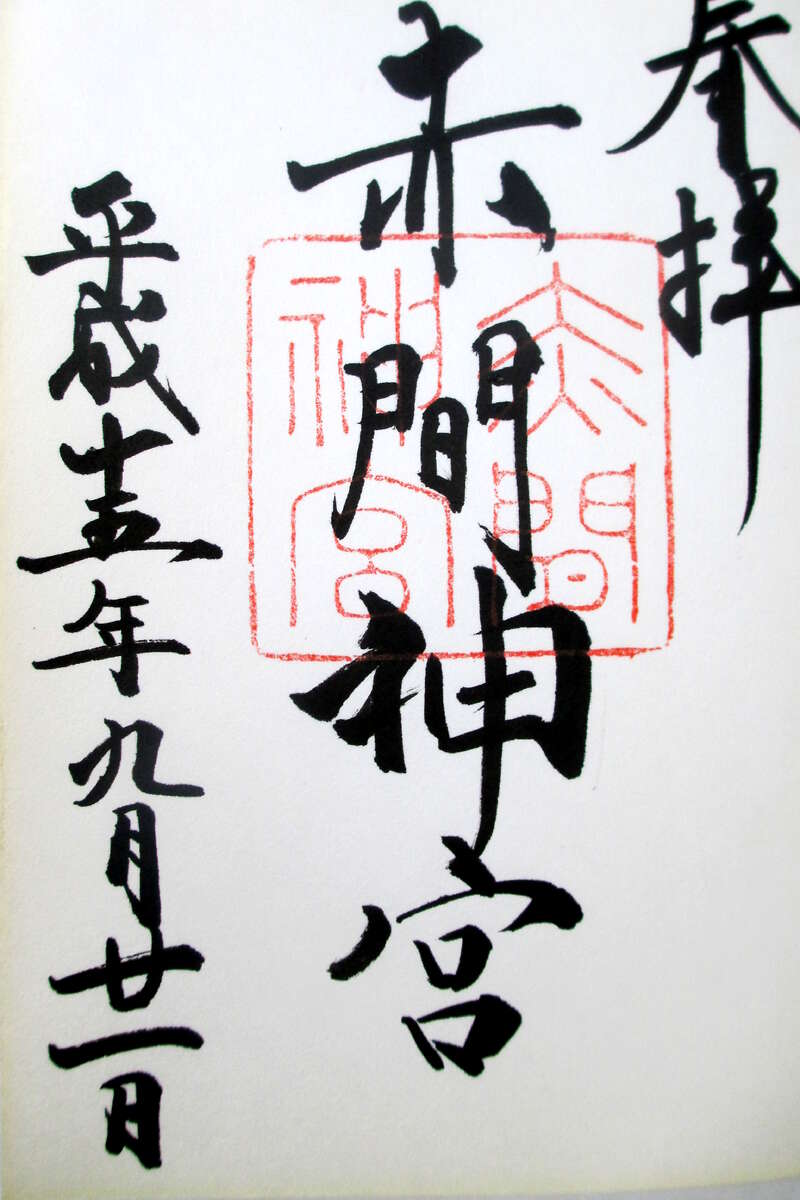 奉拝
赤間神宮
赤間
神宮
平成十五年九月廿一日